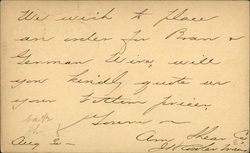 We wish to place
an order for Bran &
German Linz will
you kindly quote us
your bottom prices
Yours
Am. Shear Co
Aug 2 -